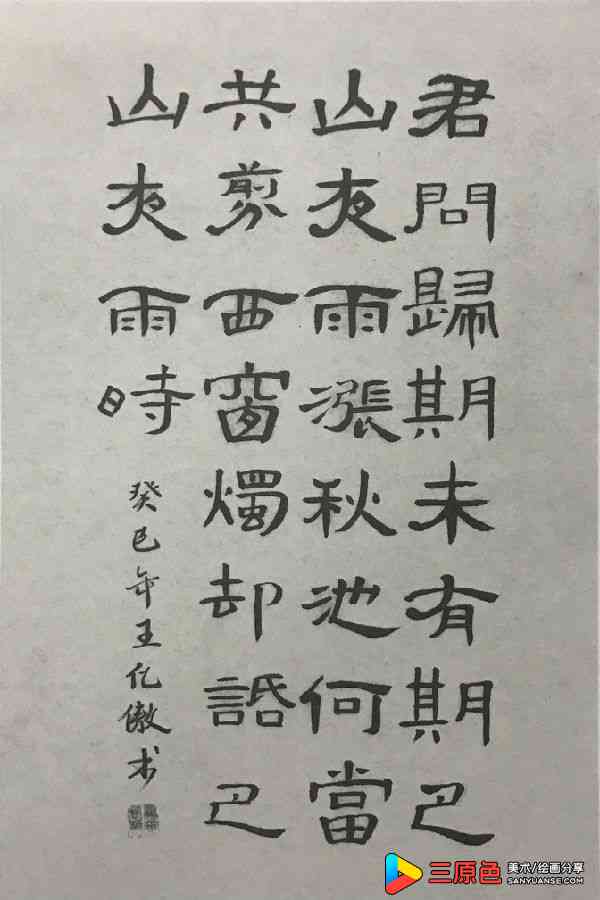 君問歸期未有期巴
山夜雨漲秋池何當
共剪西窗燭却話巴
山夜雨時
癸巳年王亿傲书
三原色
美术/绘画分享
SANYUANSE.COM